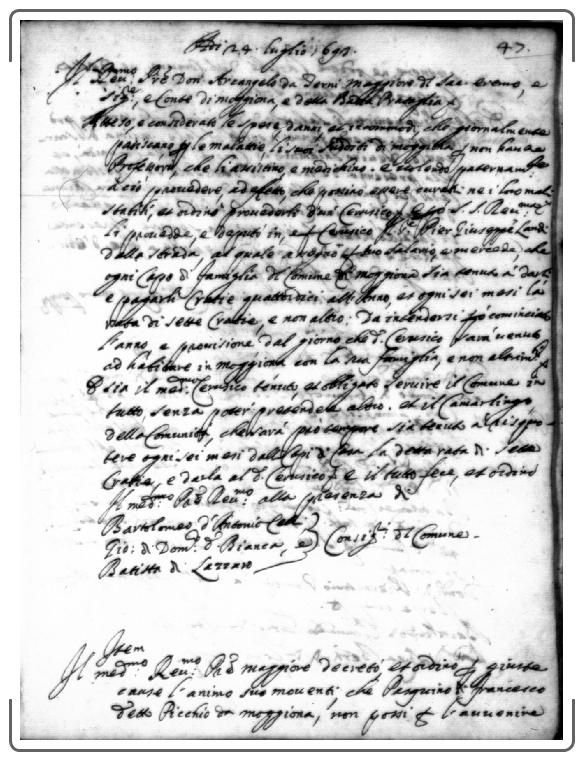 Adi 24 luglio 1692. 47.
Il Rev.mo Pre Don Arcangelo da Terni maggiore del Sac. eremo, e
Sig.re, e Conte di moggiona, e della Badia Prataglia
Atteso, e considerato le spese danni et incommodi, che giornalmente
patiscano p le malattie li suoi sudditi di moggiona p non havere
Professori, che l'assistino e medichino. e volendo paternam.te
a ciò provedere ad effetto, che possino essere curati ne i loro mali
stabilì, et ordinò provederli d'un Cerusico S. S. Rev.ma
li providde, e deputò in, e p Cerusico Pier Giuseppe Landi
dalla strada, al quale assegnò p suo salario, e mercede, che
ogni Capo di famiglia di Comune di moggiona sia tenuto a darli
e pagarli Crazie quattordici all'Anno, et ogni sei mesi la
rata di sette Crazie, e non altro: Da intendersi cominciato
l'anno, e provisione dal giorno che d.o Cerusico sarà venuto
ad habitare in moggiona con la sua famiglia, e non altrim.ti
sia il med.mo Cerusico tenuto, et obligato servire il Comune in
tutto, senza poter pretendere altro. et il Camarlingo
della Comunità, che sarà pro tempore sia tenuto a riscuo-
tere ogni sei mesi dalli Capi di Casa la detta rata di sette
Crazie, e darla al d.o Cerusico. e il tutto fece, et ordinò
Il med.mo Pre Rev.mo alla presenza di
Bartolomeo d'Antonio
Gio: di Dom.co di Bianca, e Consig.ri del Comune.
Batista di Lazzaro
Item
Il med.mo Rev.mo Pre maggiore decretò, et ordinò p giuste
cause l'animo suo moventi, che Pasquino di Francesco
detto Picchio da moggiona, non possi p l'avvenire